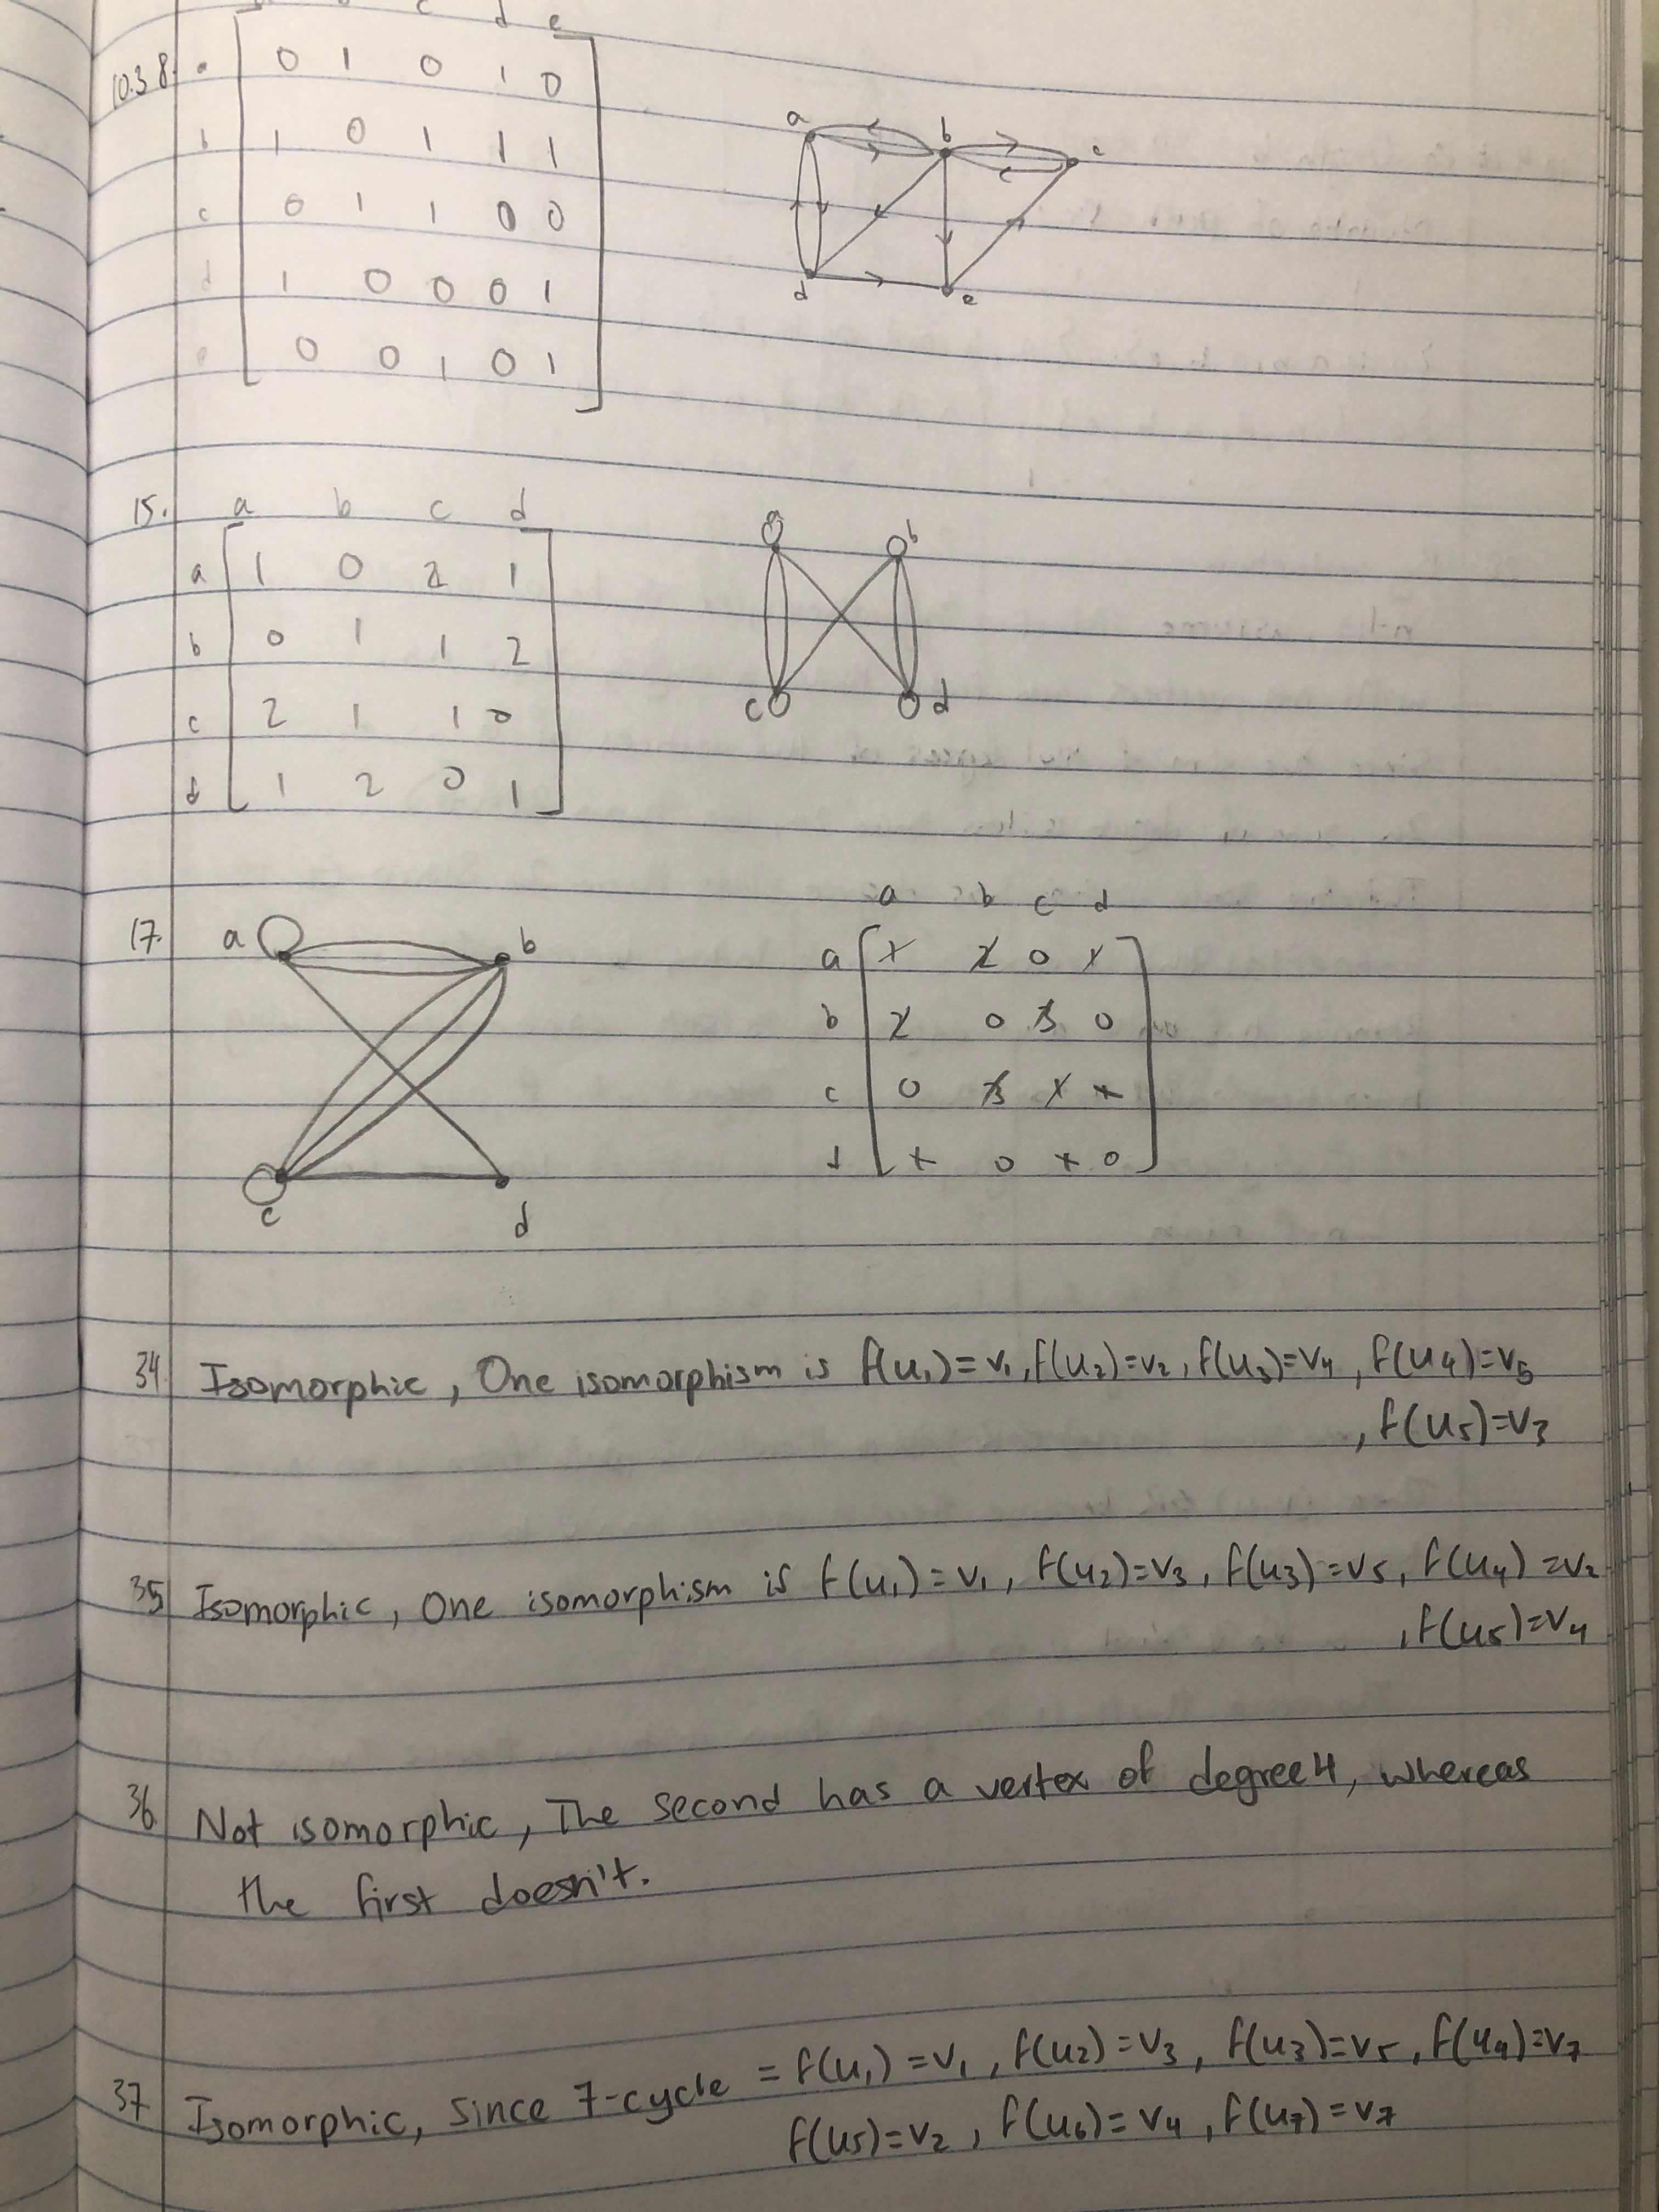 c d e
10.3 8. a 0 1 0 1 0
b 1 0 1 1 1
c 0 1 1 0 0
d 1 0 0 0 1
e 0 0 1 0 1
a b c
d e
15. a b c d
a 1 0 2 1
b 0 1 1 2
c 2 1 1 0
d 1 2 0 1
a b
c d
17. a b
c d
a b c d
a 0
b 0 0
c 0
d 0 0
34 Isomorphic, One isomorphism is f(u₁)=v₁, f(u₂)=v₂, f(u₃)=v₄, f(u₄)=v₅
, f(u₅)=v₃
35 Isomorphic, One isomorphism is f(u₁)=v₁, f(u₂)=v₃, f(u₃)=v₅, f(u₄)=v₂
, f(u₅)=v₄
36 Not isomorphic, The second has a vertex of degree 4, whereas
the first doesn't.
37. Isomorphic, since 7-cycle = f(u₁)=v₁, f(u₂)=v₃, f(u₃)=v₅, f(u₄)=v₇
f(u₅)=v₂, f(u₆)=v₄, f(u₇)=v₇